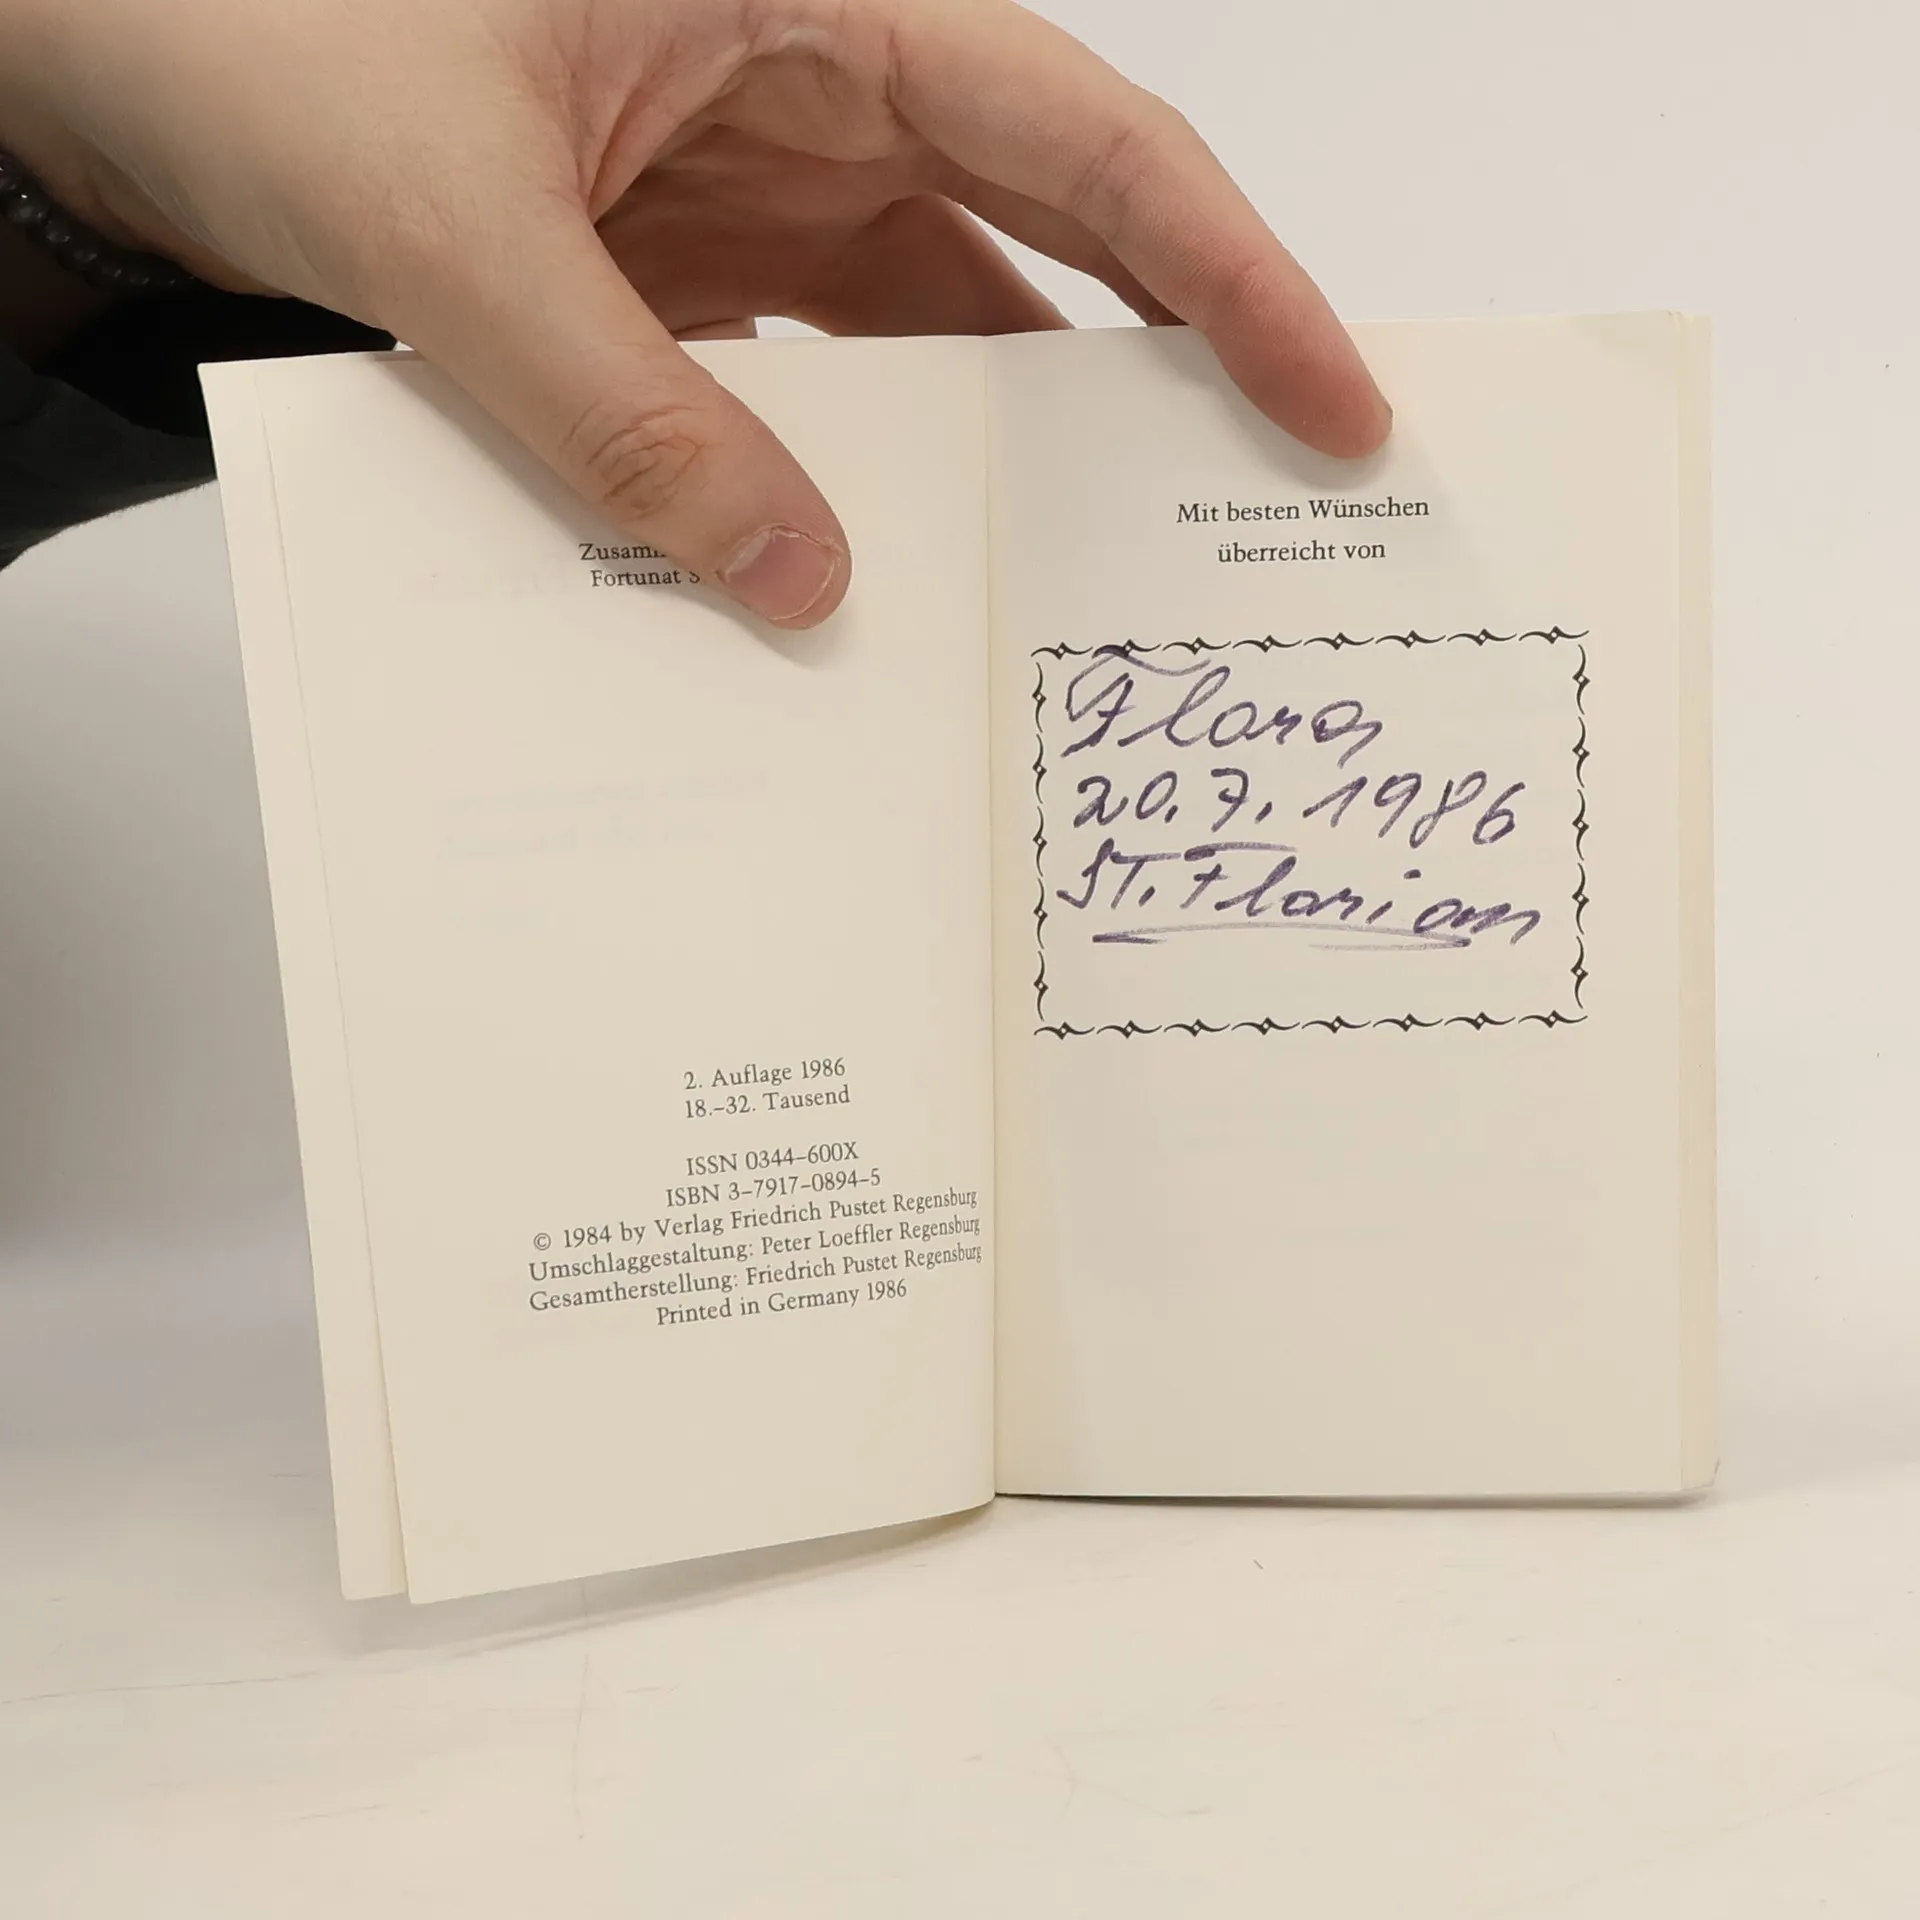 Fortunat
2. Auflage 1986
18.–32. Tausend
ISSN 0344–600X
ISBN 3–7917–0894–5
© 1984 by Verlag Friedrich Pustet Regensburg
Umschlaggestaltung: Peter Loeffler Regensburg
Gesamtherstellung: Friedrich Pustet Regensburg
Printed in Germany 1986
Mit besten Wünschen
überreicht von
Flora
20. 7. 1986
ST. Florian